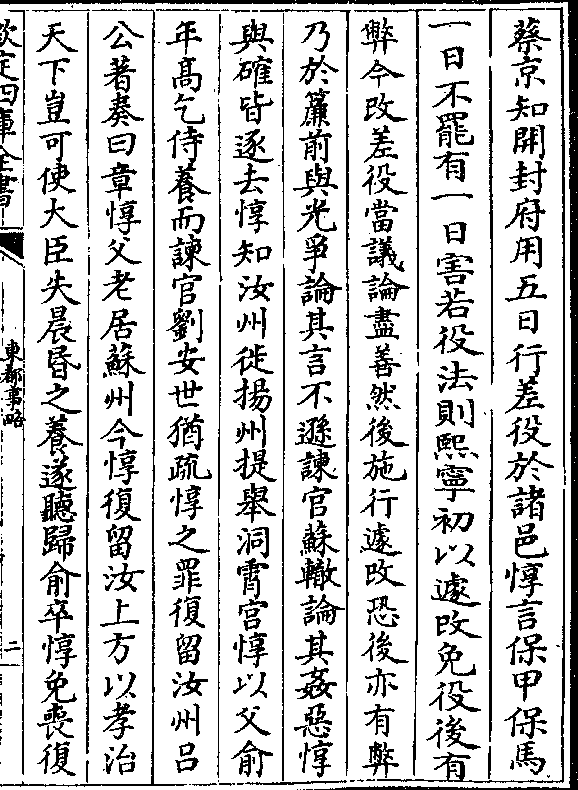 蔡京知開封府用五日行差役於諸邑惇言保甲保馬
一日不罷有一日害若役法則熙寧初以遽改免役後有
弊今改差役當議論盡善然後施行遽改恐後亦有弊
乃於簾前與光爭論其言不遜諫官蘇轍論其姦惡惇
與確皆逐去惇知汝州徙揚州提舉洞霄宮惇以父俞
年髙乞侍養而諫官劉安世猶疏惇之罪復留汝州吕
公著奏曰章惇父老居蘇州今惇復留汝上方以孝治
天下豈可使大臣失晨昏之養遂聽歸俞卒惇免喪復
欽定四庫全書
東都事略
二